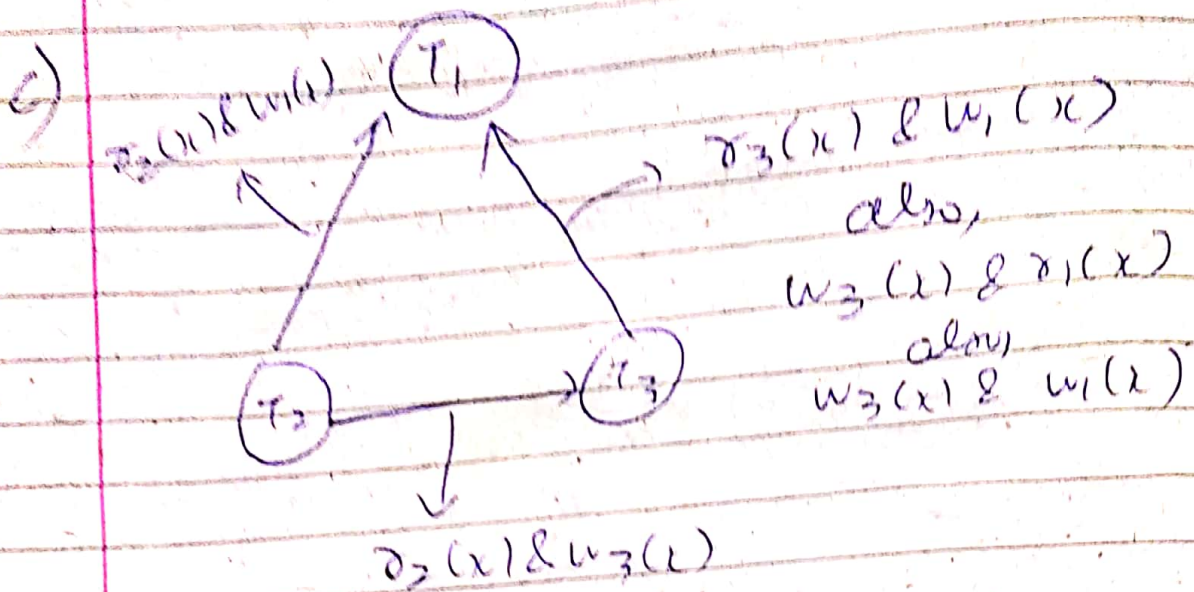 c)
T₁
r₂(x) & w₁(x)
r₃(x) & w₁(x)
also,
w₃(x) & r₁(x)
also,
w₃(x) & w₁(x)
T₂
T₃
r₂(x) & w₃(x)